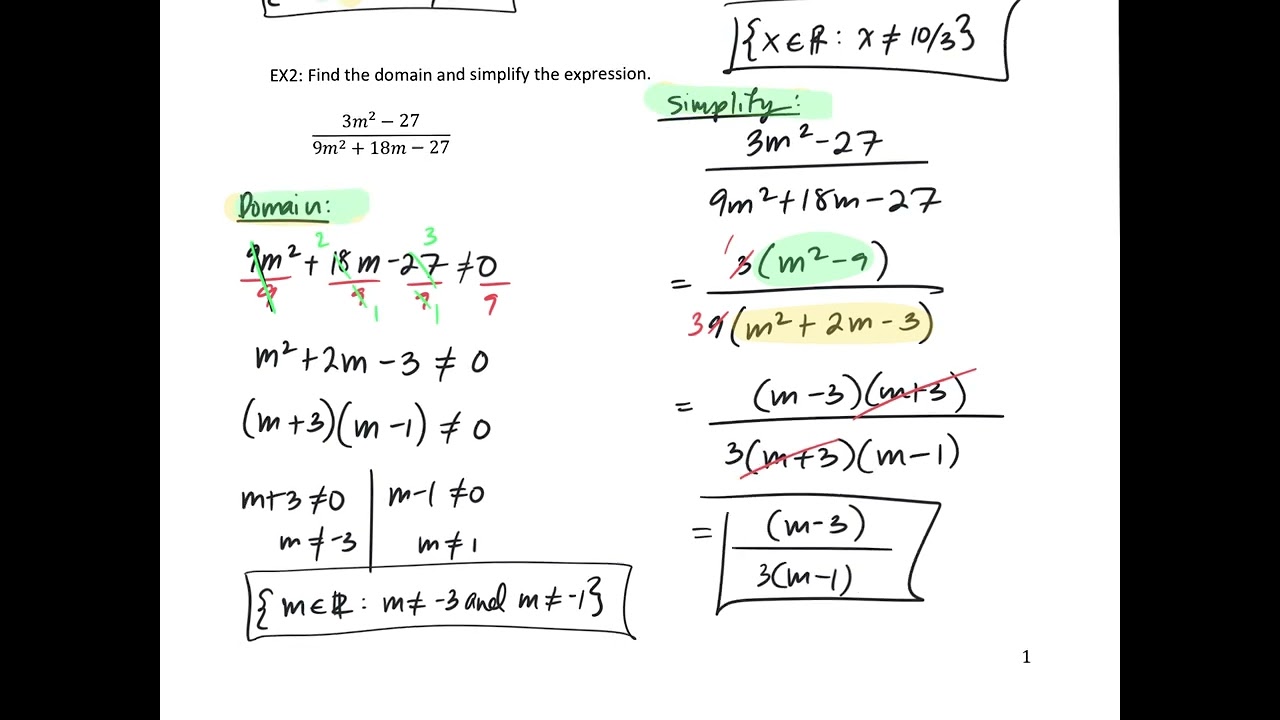 {x∈ℝ: x ≠ 10/3}
EX2: Find the domain and simplify the expression.
3m² − 27
9m² + 18m − 27
Domain:
2 3
9m² + 18m - 27 ≠ 0
9 9 9 9
1 1
m² + 2m - 3 ≠ 0
(m+3)(m-1) ≠ 0
m+3 ≠ 0 | m-1 ≠ 0
m ≠ -3 | m ≠ 1
{m∈ℝ: m ≠ -3 and m ≠ -1}
Simplify:
3m² - 27
9m² + 18m - 27
1 3(m² - 9)
=
3 9(m² + 2m - 3)
(m-3)(m+3)
=
3(m+3)(m-1)
(m-3)
=
3(m-1)
1